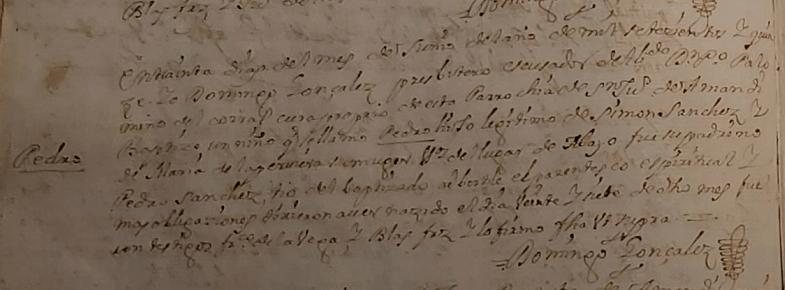 Blas frz
En treinta dias del mes de Junio del año de mil setezientos y quin
ze Yo Domingo Gonçalez presbitero escusador de
mino del corral cura propio de esta Parrochia de Sn Ju° de Amandi
Baptize un niño q se llamo Pedro hijo legitimo de Simon Sanchez y
Pedro
de Maria de la su muger Vs del lugar de Abajo fue su padrino
Pedro Sanchez tio del baptizado advertile el parentesco espiritual y
mas obligaciones dixeron aver nazido el dia veinte y siete de dho mes fue
ron testigos fr° de la Vega y Blas frz y lo firmo fha Vt supra
Domingo Gonçalez